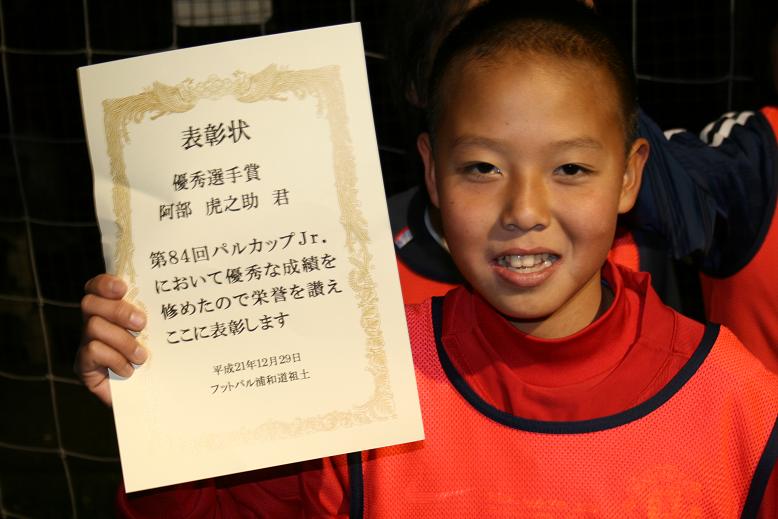 表彰状
優秀選手賞
阿部 虎之助 君
第84回パルカップJr.
において優秀な成績を
修めたので栄誉を讃え
ここに表彰します
平成21年12月29日
フットパル浦和道祖土